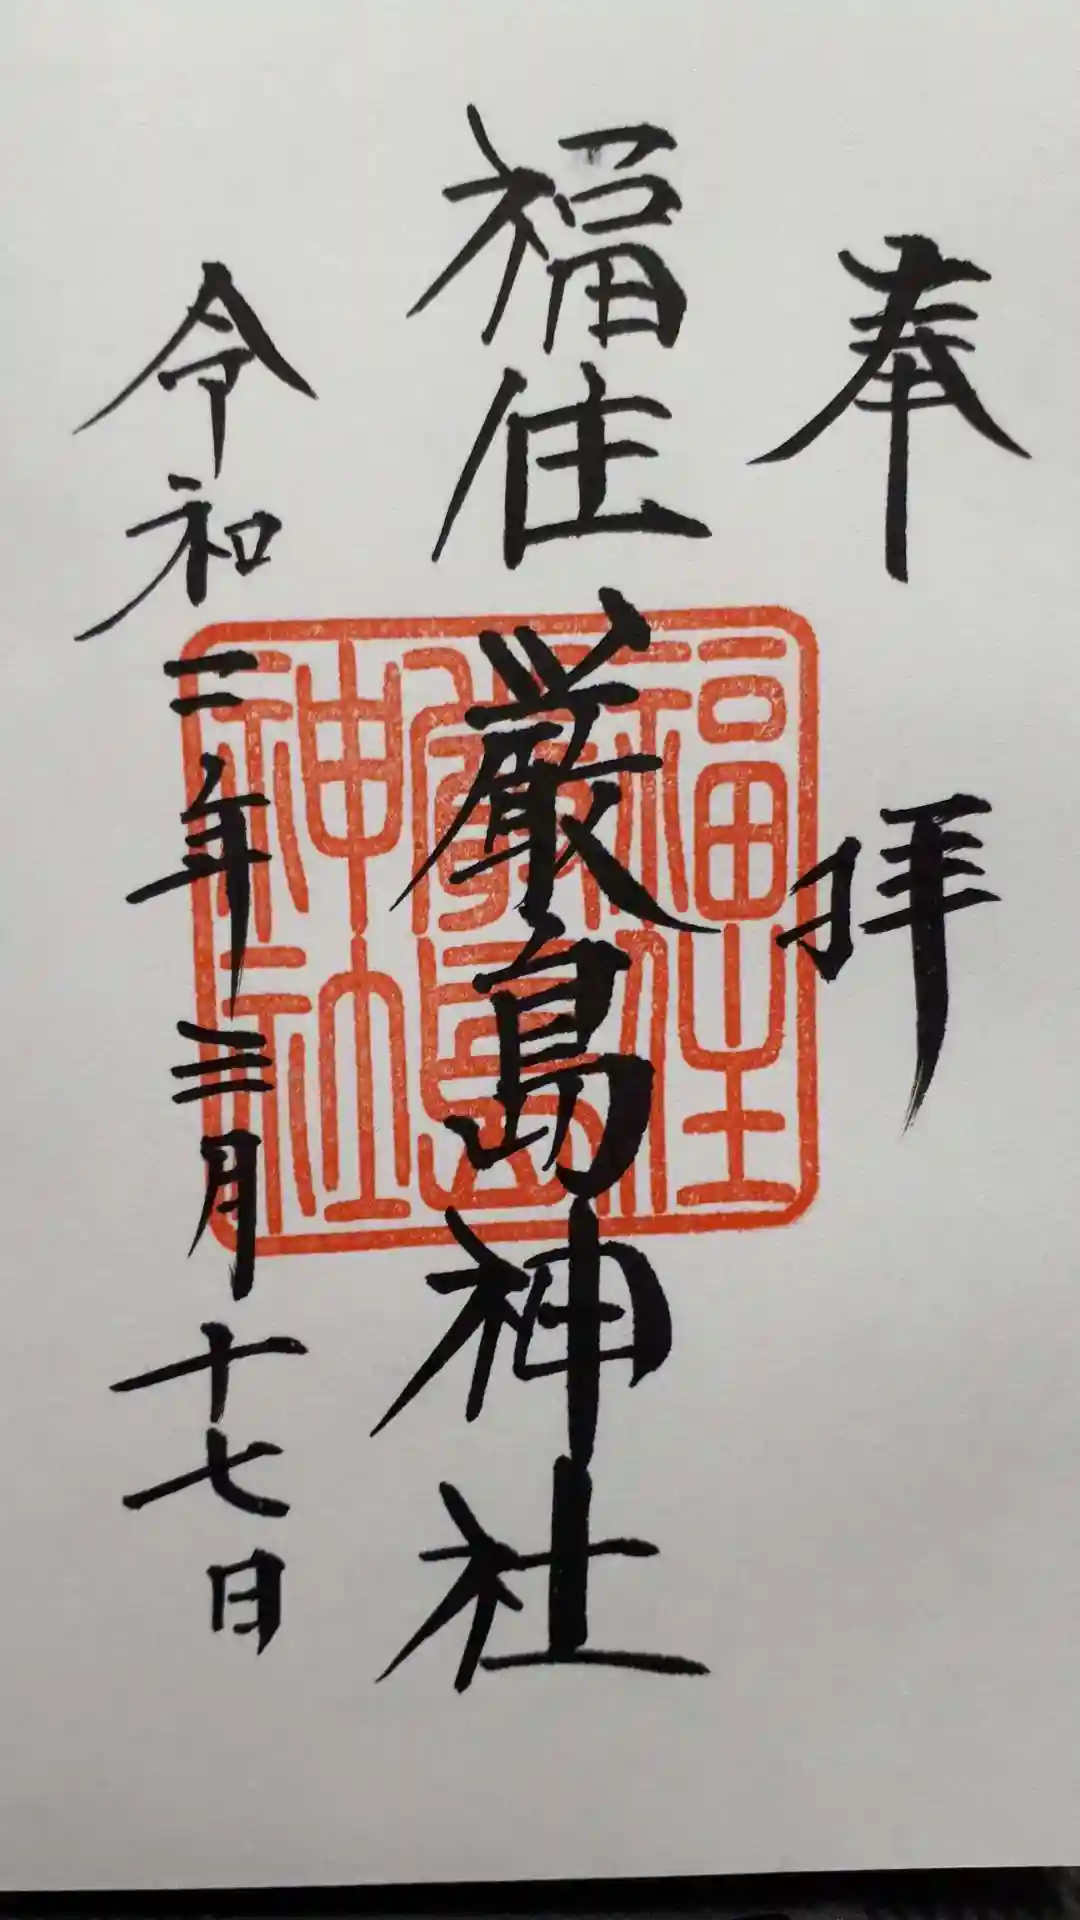 奉拝
福住厳島神社
福住
厳島
神社
令和二年三月十七日